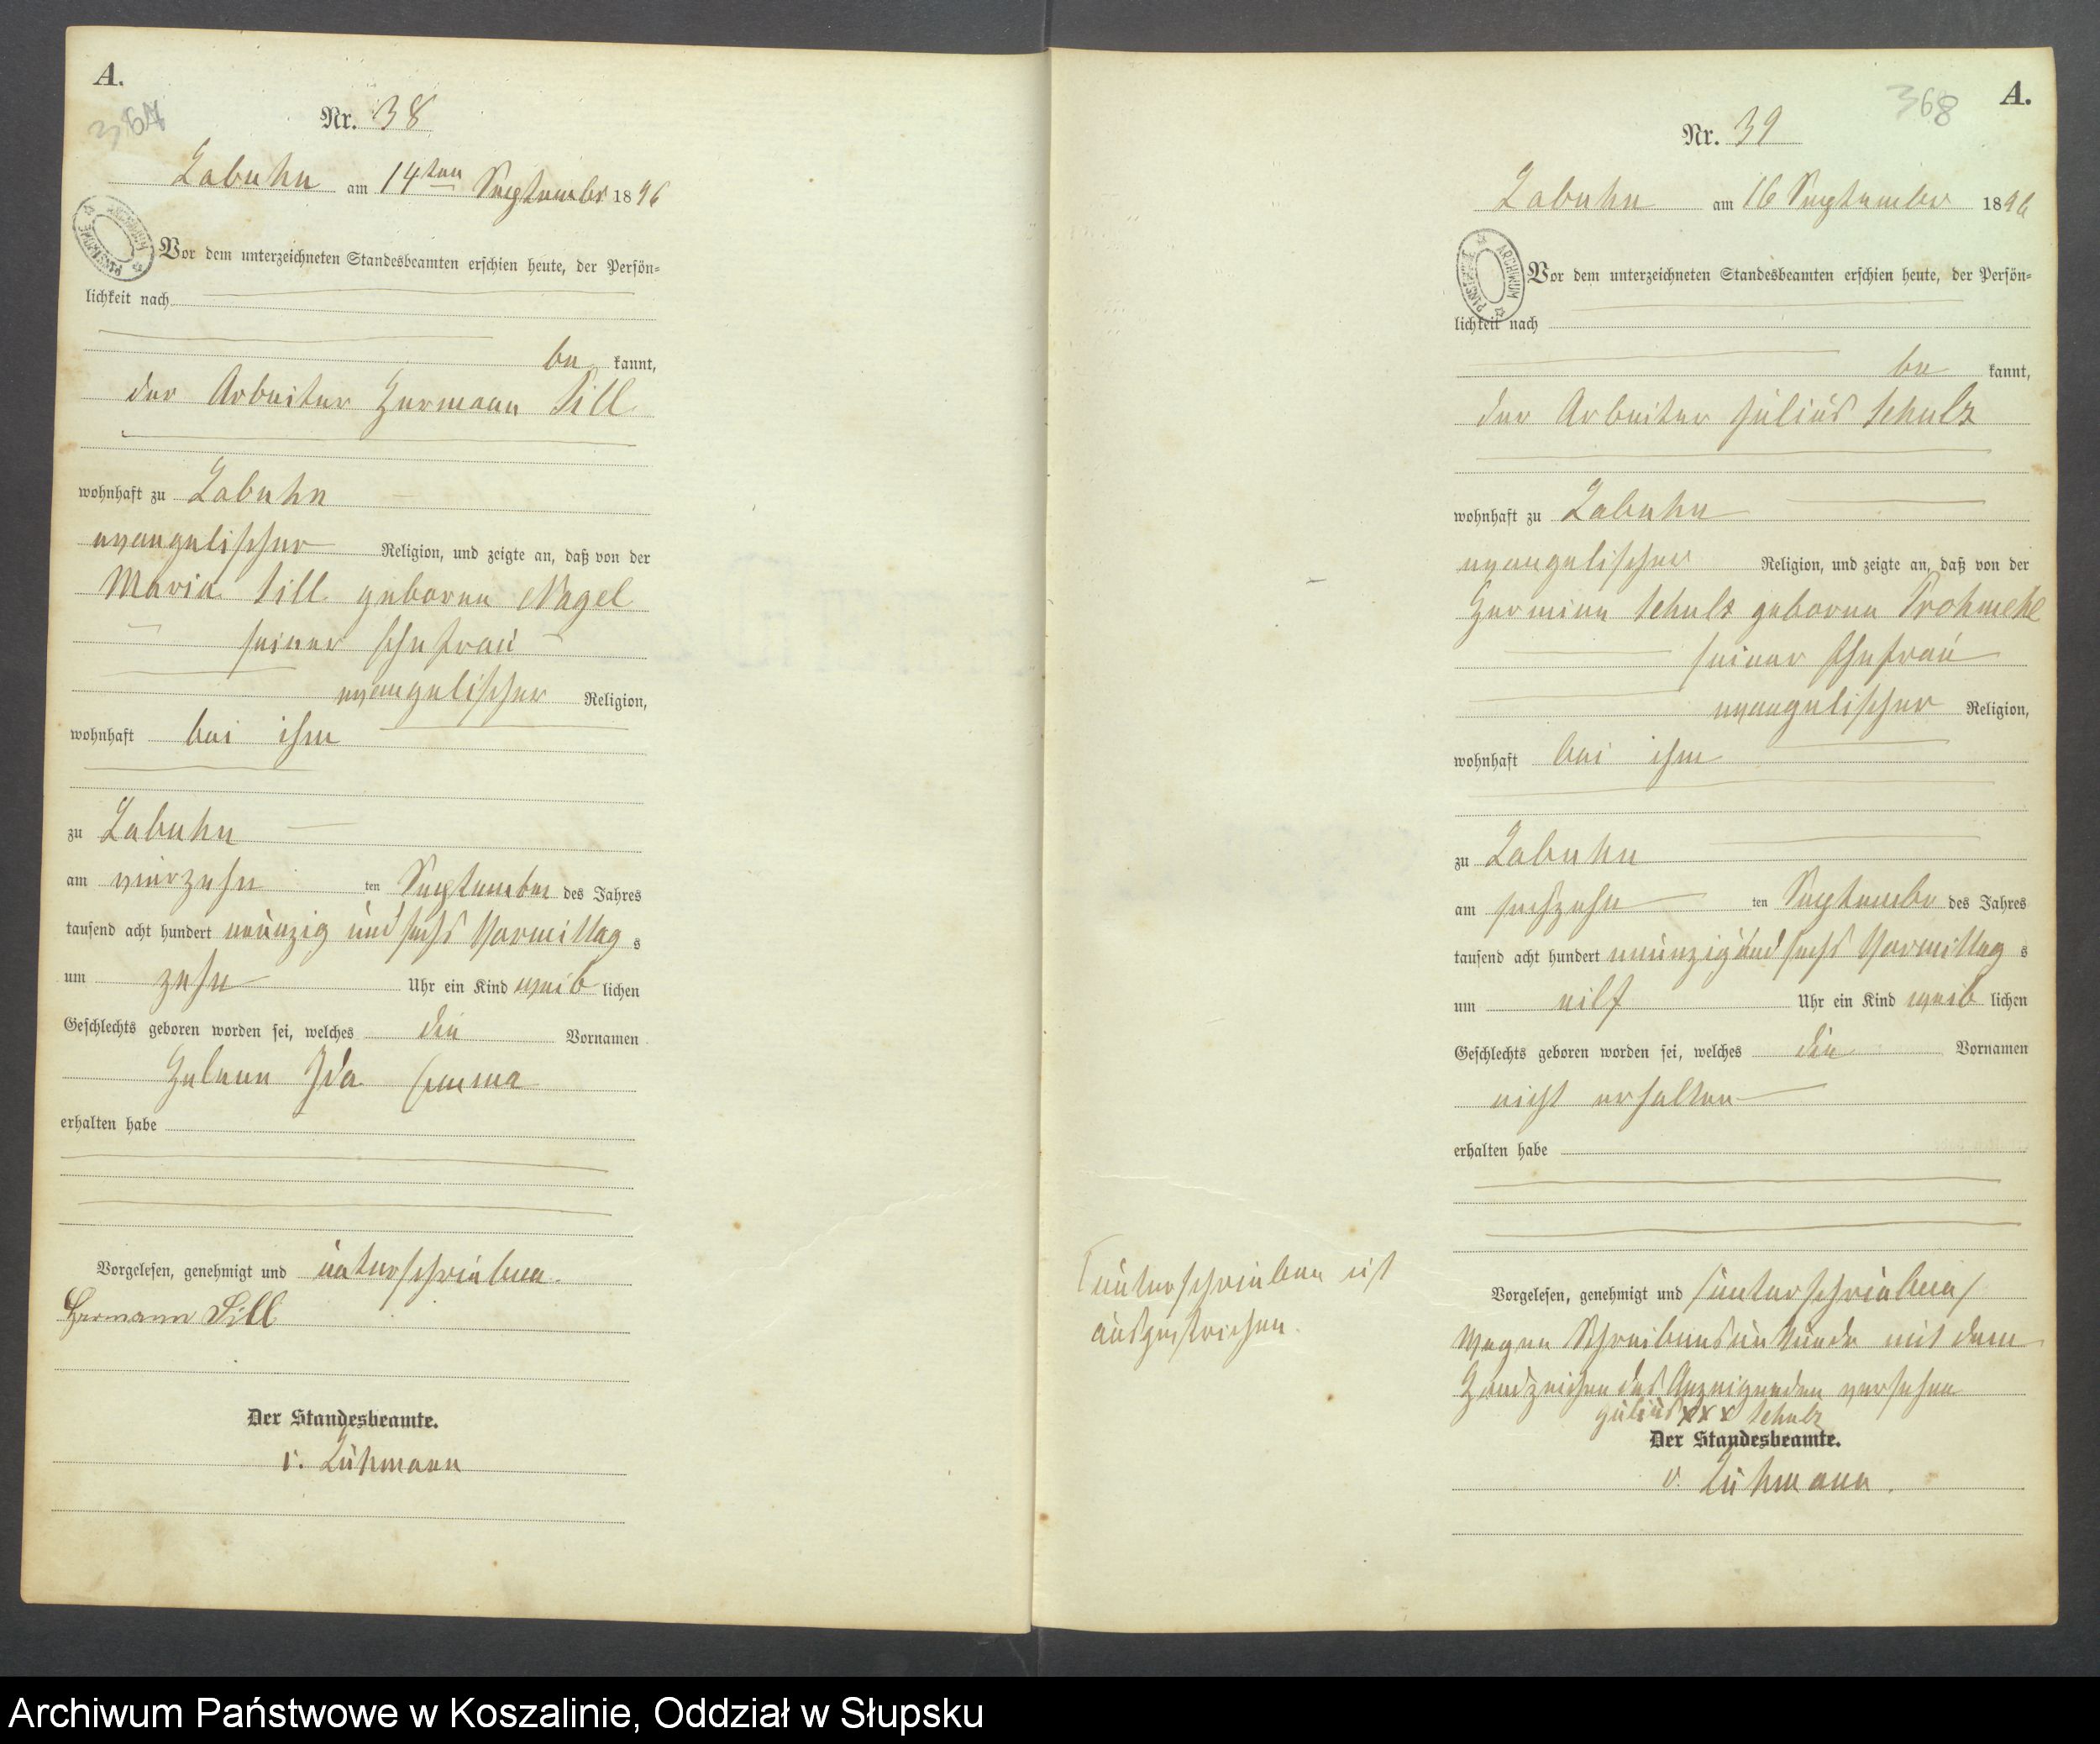 A.
367
Nr. 38
Labuhn am 14ten September 1896
Vor dem unterzeichneten Standesbeamten erschien heute, der Persön-
lichkeit nach
be kannt,
der Arbeiter Hermann Sill
wohnhaft zu Labuhn
evangelischer Religion, und zeigte an, daß von der
Maria Sill geborene Nagel
seiner Ehefrau
evangelischer Religion,
wohnhaft bei ihm
zu Labuhn
am vierzehn ten September des Jahres
tausend acht hundert neunzig und sechs Vormittag s
um zehn Uhr ein Kind weib lichen
Geschlechts geboren worden sei, welches die Vornamen
Helene Ida Emma
erhalten habe
Vorgelesen, genehmigt und unterschrieben.
Hermann Sill
Der Standesbeamte.
v. Lühmann
A.
368
Nr. 39
Labuhn am 16 September 1896
ARCHIWUM PAŃSTWOWE
Vor dem unterzeichneten Standesbeamten erschien heute, der Persön-
lichkeit nach
be kannt,
der Arbeiter Julius Schulz
wohnhaft zu Labuhn
evangelischer Religion, und zeigte an, daß von der
Hermine Schulz geborene Prohmehl
seiner Ehefrau
evangelischer Religion,
wohnhaft bei ihm
zu Labuhn
am sechzehn ten September des Jahres
tausend acht hundert neunzig und sechs Vormittag s
um eilf Uhr ein Kind weib lichen
Geschlechts geboren worden sei, welches die Vornamen
nicht erhalten
erhalten habe
unterschrieben ist
ausgestrichen.
Vorgelesen, genehmigt und /unterschrieben/
Wegen Schreibensunkunde mit dem
Handzeichen des Anzeigenden versehen
Julius xxx Schulz
Der Standesbeamte.
v. Lühmann.
Archiwum Państwowe w Koszalinie, Oddział w Słupsku